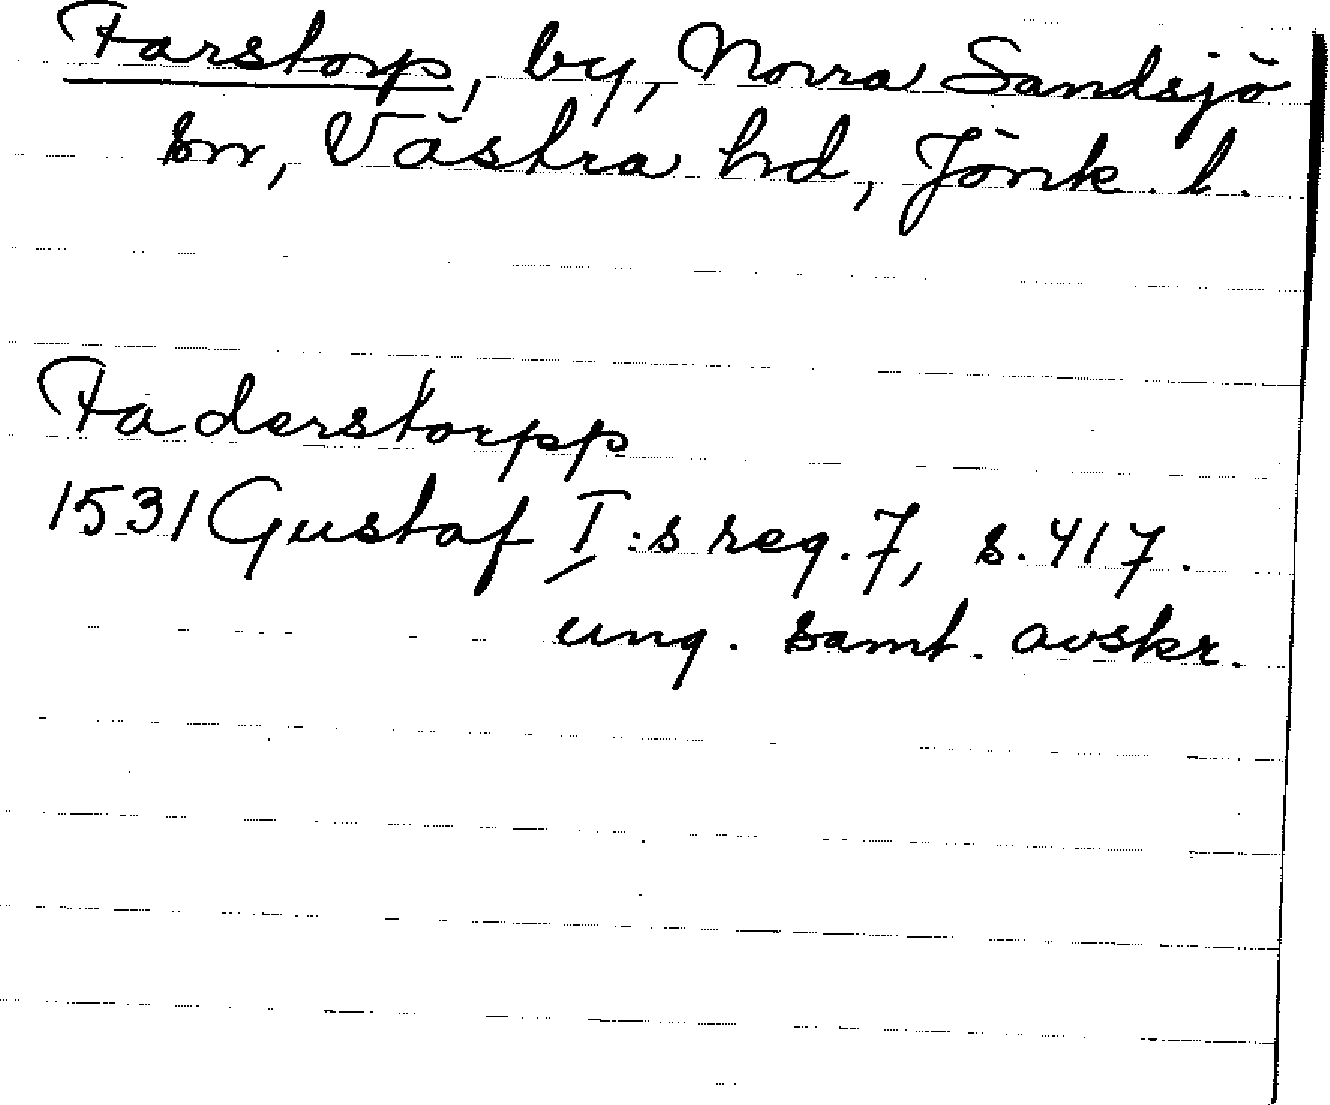 Farstorp, by, Norra Sandsjö
sn, Västra hd, Jönk. l.
Faderstorpp
1531 Gustaf I:s reg. 7, s. 417.
ung. samt. avskr.